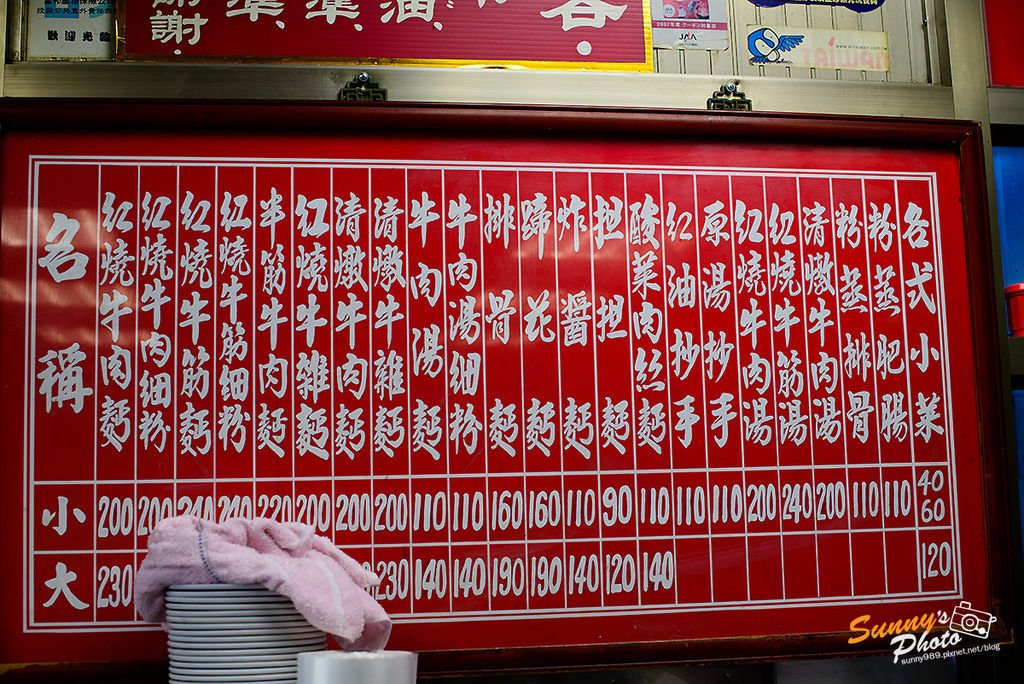 歡迎光臨
謝
準準油
容
2007年度 クーポン対象店
JNA
www.eritaiwan.com
TAIWAN
名稱
紅燒牛肉麵
紅燒牛肉細粉
紅燒牛筋麵
紅燒牛筋細粉
半筋牛肉麵
紅燒牛雜麵
清燉牛肉麵
清燉牛雜麵
牛肉湯麵
牛肉湯細粉
排骨麵
蹄花麵
炸醬麵
担担麵
酸菜肉絲麵
紅油抄手
原湯抄手
紅燒牛肉湯
紅燒牛筋湯
清燉牛肉湯
粉蒸排骨
粉蒸肥腸
各式小菜
小 200 200 240 240 220 200 200 200 110 110 160 160 110 90 110 110 110 200 240 200 110 110 40 60
大 230 230 140 140 190 190 140 120 140 120
Sunny's
Photo
sunny989.pixnet.net/blog